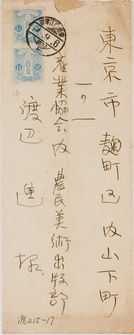 東京市麹町区内山下町
一の一
産業協会内 農民美術出版部
渡辺進様
渡215-17